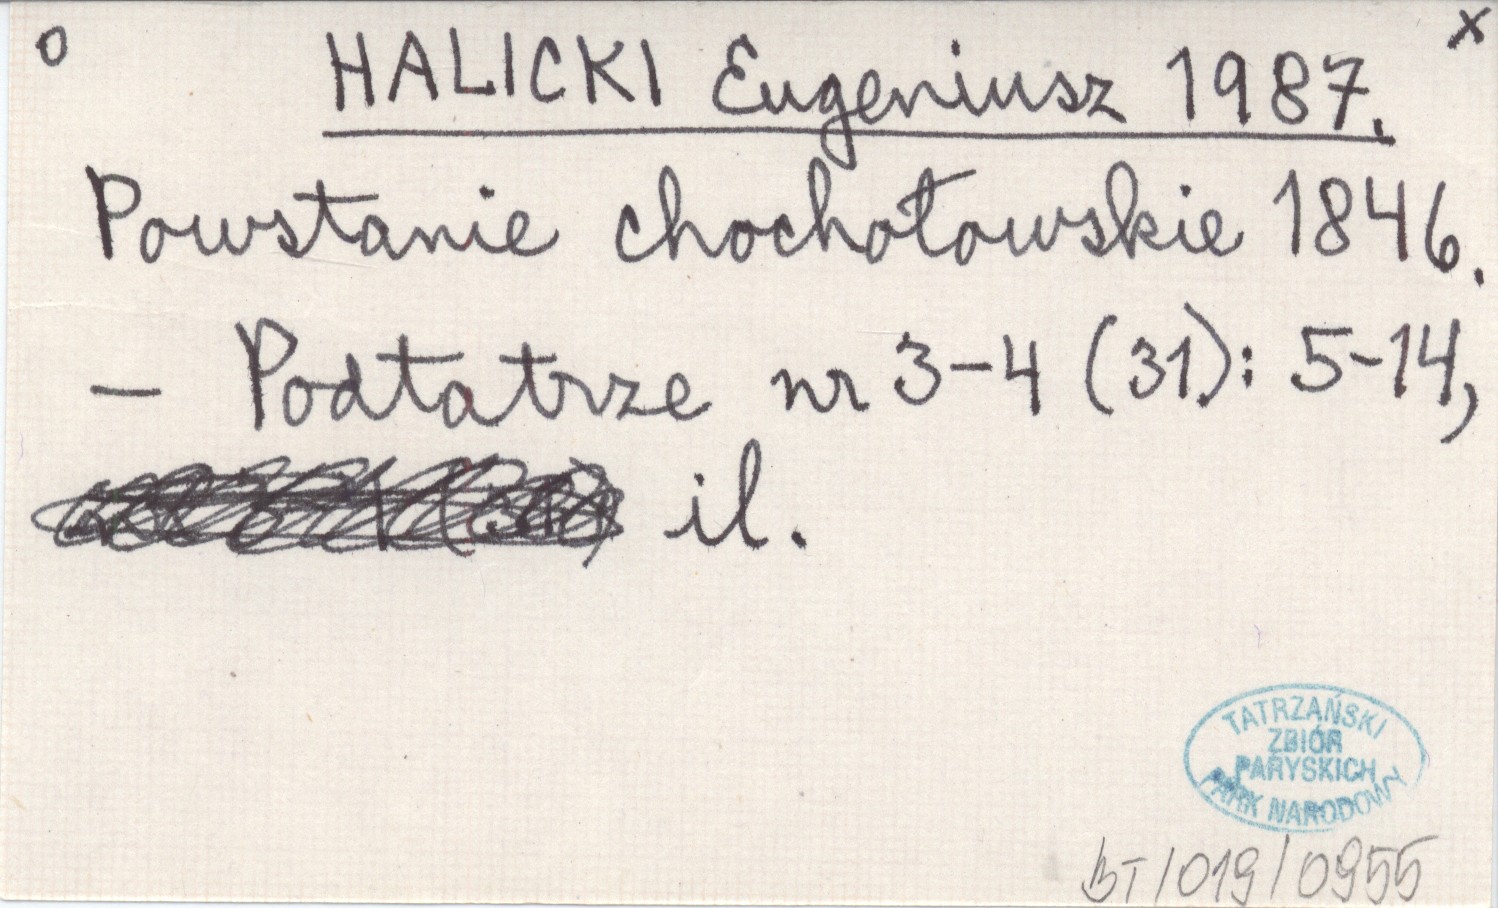 o x
HALICKI Eugeniusz 1987.
Powstanie chochołowskie 1846.
— Podtatrze nr 3-4 (31): 5-14,
il.
TATRZAŃSKI
ZBIÓR
PARYSKICH
PARK NARODOWY
BT/019/0955